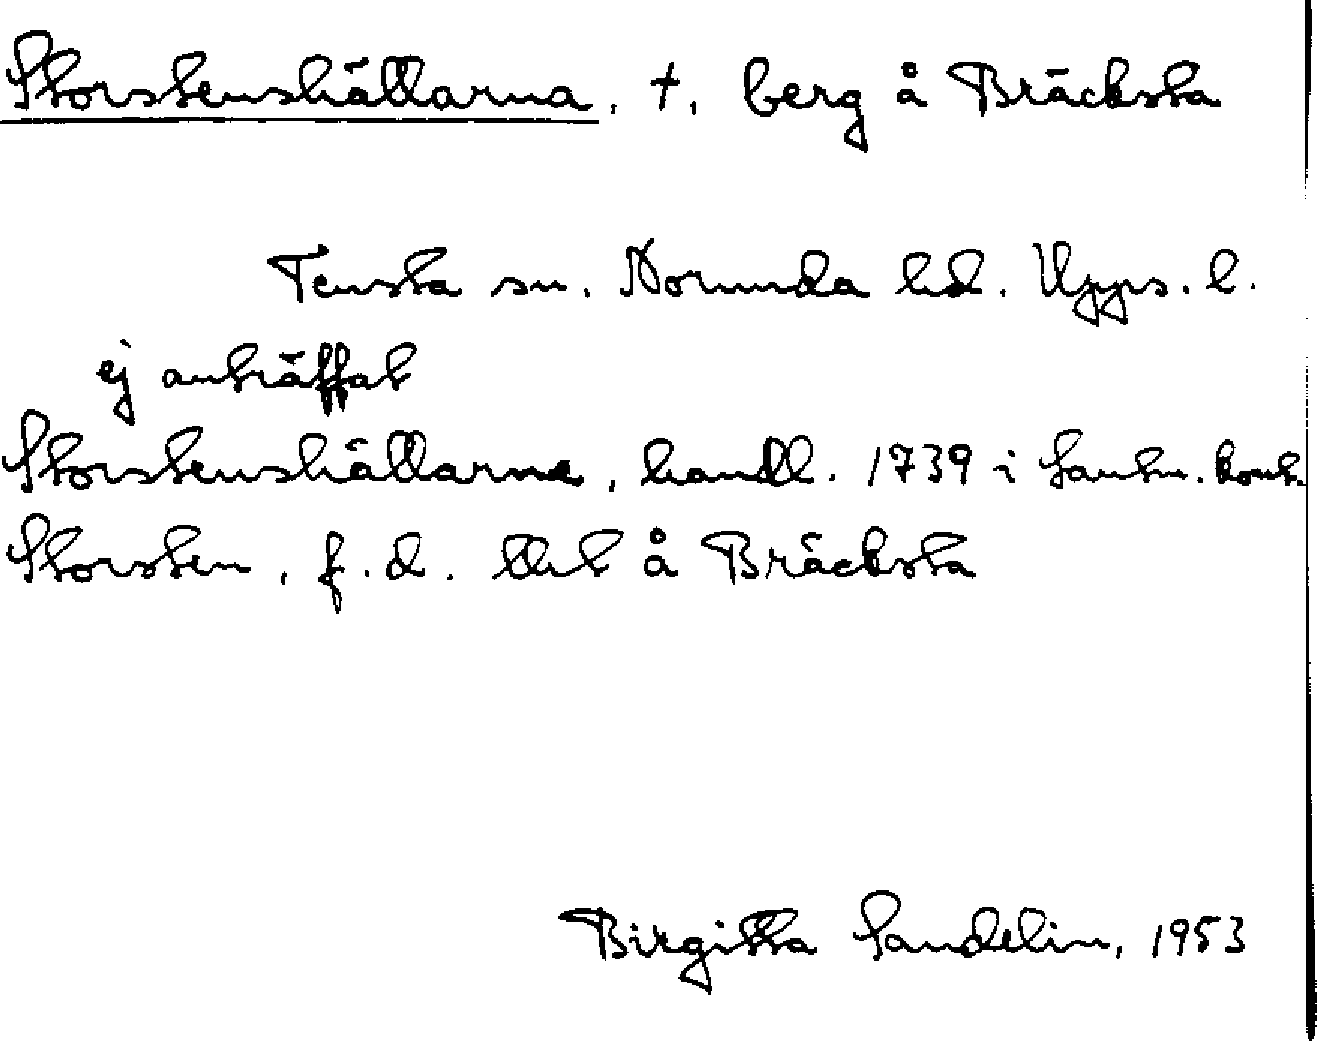 Storstenshällarna, †, berg å Bräcksta
Tensta sn. Norunda hd. Upps. l.
ej anträffat
Storstenshällarne, handl. 1739 i Lantm. kont.
Storsten, f.d. tkt å Bräcksta
Birgitta Sandelin, 1953